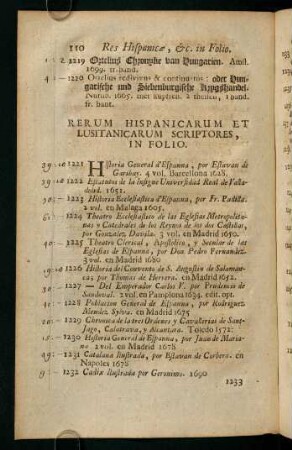 110 Res Hispanicæ, &c. in Folio.
1219 Ortelius Chronyke van Hungarien. Amst.
1699. fr. band.
1220 Ortelius redivivus & continuatus: oder Hun-
garische und Siebenburgische Krygshandel.
Norimb. 1665. met kupfern. 2 theilen, 1 band.
fr. bant.
RERUM HISPANICARUM ET
LUSITANICARUM SCRIPTORES,
IN FOLIO.
1221 Historia General d'Espanna, por Estavan de
Garabay. 4 vol. Barcellona 1628.
1222 Estatutos de la Insigne Universidad Real de Vala-
dolid. 1651.
1223 Historia Ecclesiastica d'Espanna, por Fr. Padilla.
2 vol. en Malaga 1605.
1224 Theatro Ecclesiastico de las Eglesias Metropolita-
nas y Catedrales de los Reynos de las dos Castillas,
por Gonzales Davila. 3 vol. en Madrid 1650.
1225 Theatro Clerical, Apostolico, y Secular de las
Eglesias de Espanna, por Don Pedro Fernandez.
3 vol. en Madrid 1680
1226 Historia del Convento de S. Augustin de Salaman-
ca, por Thomas de Herrera. en Madrid 1652.
1227 — Del Emperador Carlos V. por Prudencio de
Sandoval. 2 vol. en Pamplona 1634. edit. opt.
1228 Poblacion General de Espanna, por Rodriguez
Mendez Sylva. en Madrid 1675
1229 Chronica de las tres Ordenes y Cavallerias de Sant-
Jago, Calatrava, y Alcantara. Toledo 1572.
1230 Historia General de Espanna, por Juan de Maria-
na. 2 vol. en Madrid 1678
1231 Cataluna Ilustrada, por Estavan de Corbera. en
Napoles 1678
1232 Cadix Ilustrada por Geronimo. 1690
1233